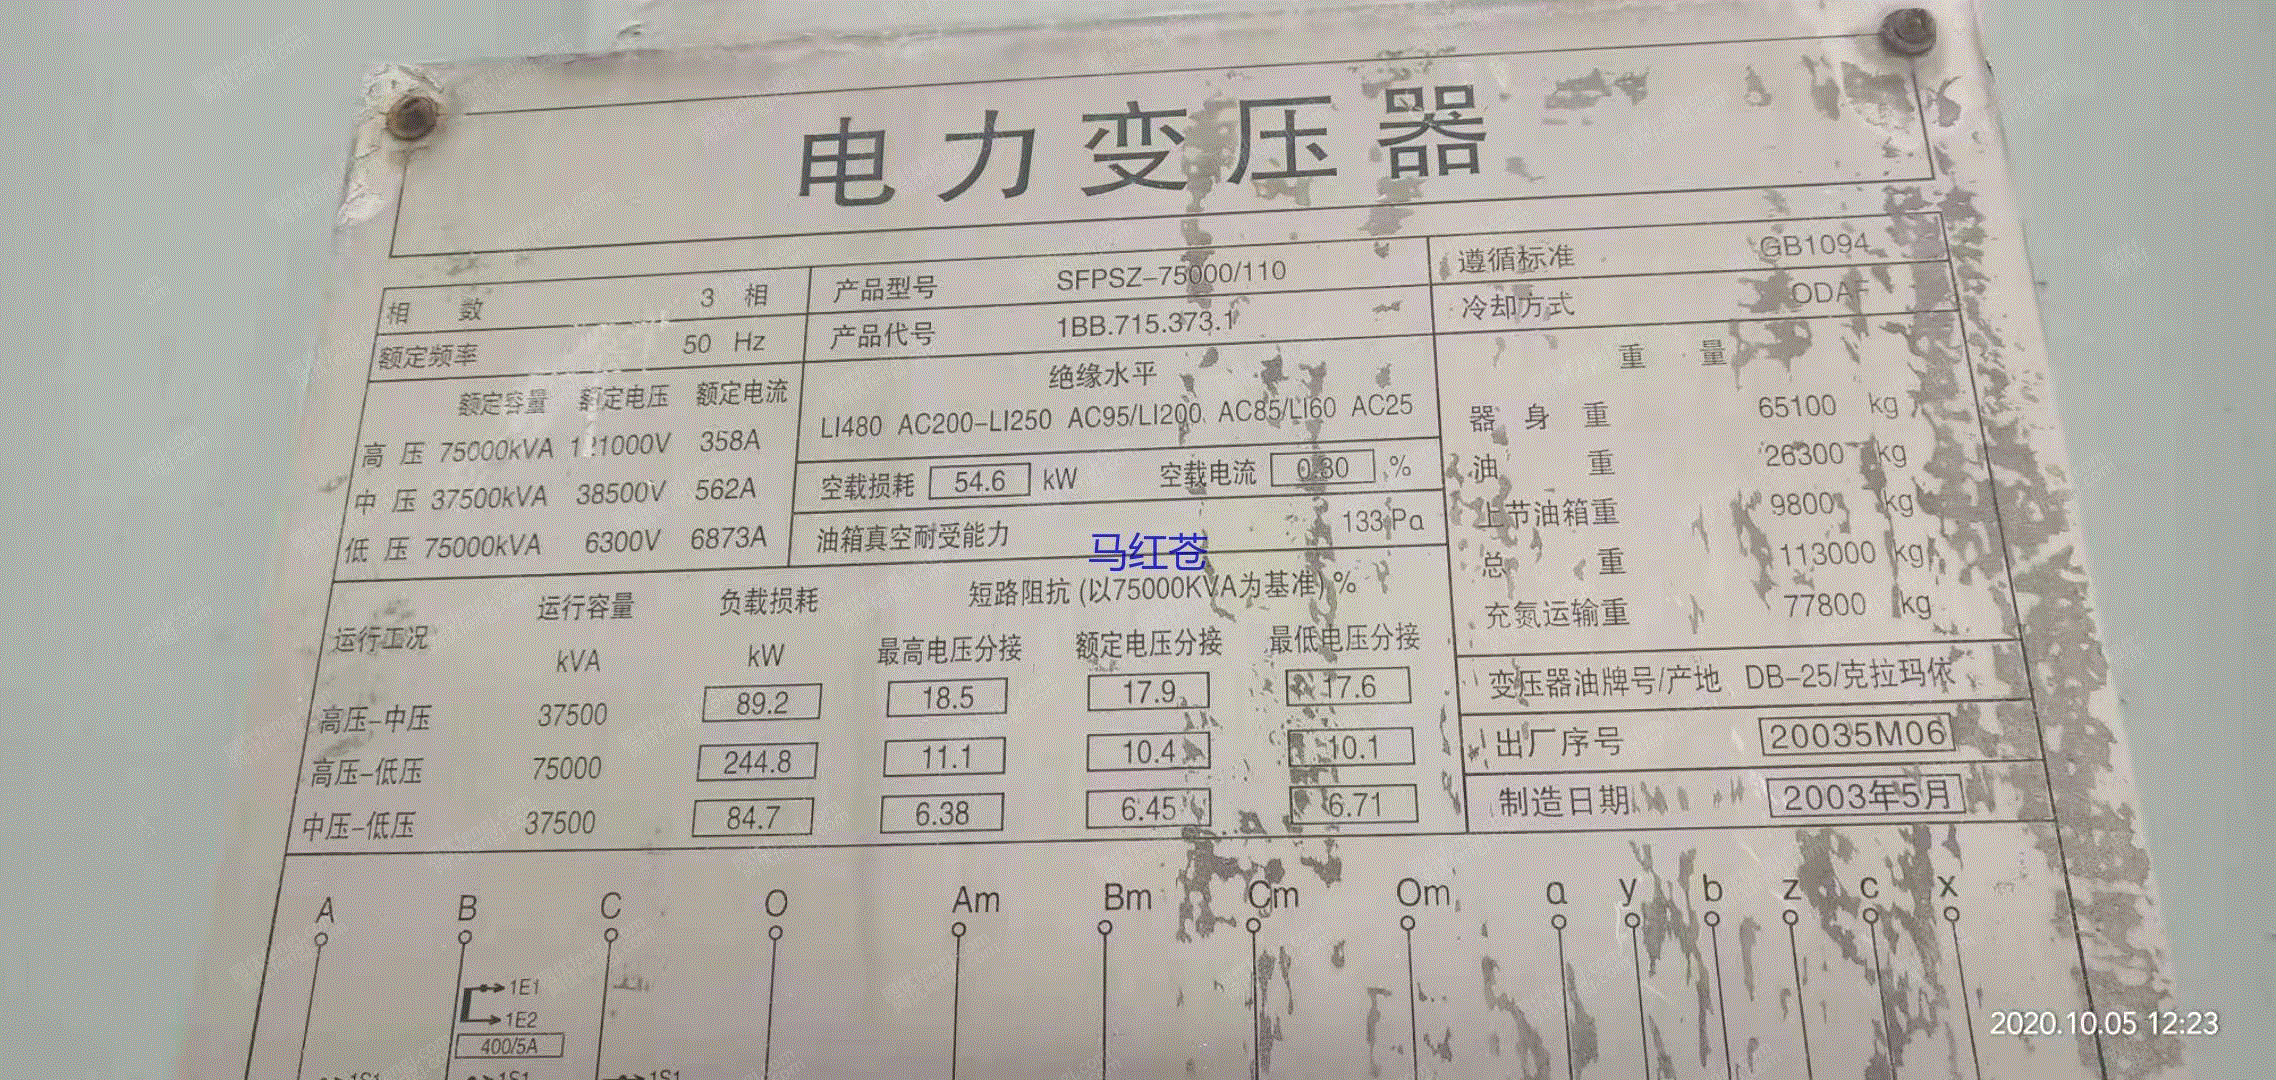 电力变压器
相 数 3 相
额定频率 50 Hz
额定容量 额定电压 额定电流
高 压 75000kVA 121000V 358A
中 压 37500kVA 38500V 562A
低 压 75000kVA 6300V 6873A
产品型号 SFPSZ-75000/110
产品代号 1BB.715.373.1
绝缘水平
LI480 AC200-LI250 AC95/LI200 AC85/LI60 AC25
空载损耗 54.6 kW 空载电流 0.30 %
油箱真空耐受能力 133 Pa
马红苍
遵循标准 GB1094
冷却方式 ODAF
重 量
器 身 重 65100 kg
油 重 26300 kg
上节油箱重 9800 kg
总 重 113000 kg
充氮运输重 77800 kg
变压器油牌号/产地 DB-25/克拉玛依
出厂序号 20035M06
制造日期 2003年5月
运行工况 运行容量 负载损耗 短路阻抗 (以75000KVA为基准) %
kVA kW 最高电压分接 额定电压分接 最低电压分接
高压-中压 37500 89.2 18.5 17.9 17.6
高压-低压 75000 244.8 11.1 10.4 10.1
中压-低压 37500 84.7 6.38 6.45 6.71
A B C O Am Bm Cm Om a y b z c x
1E1
1E2
400/5A
1S1 1S1 1S1
2020.10.05 12:23